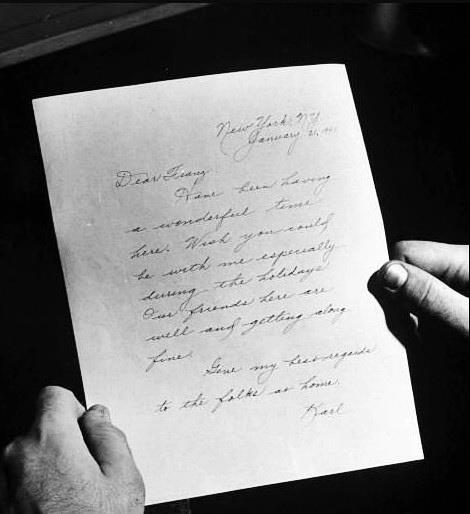 New York, NY
January 2, 1941
Dear Franz
Have been having
a wonderful time
here. Wish you could
be with me especially
during the holidays
Our friends here are
well and getting along
fine.
Give my best regards
to the folks at home.
Karl